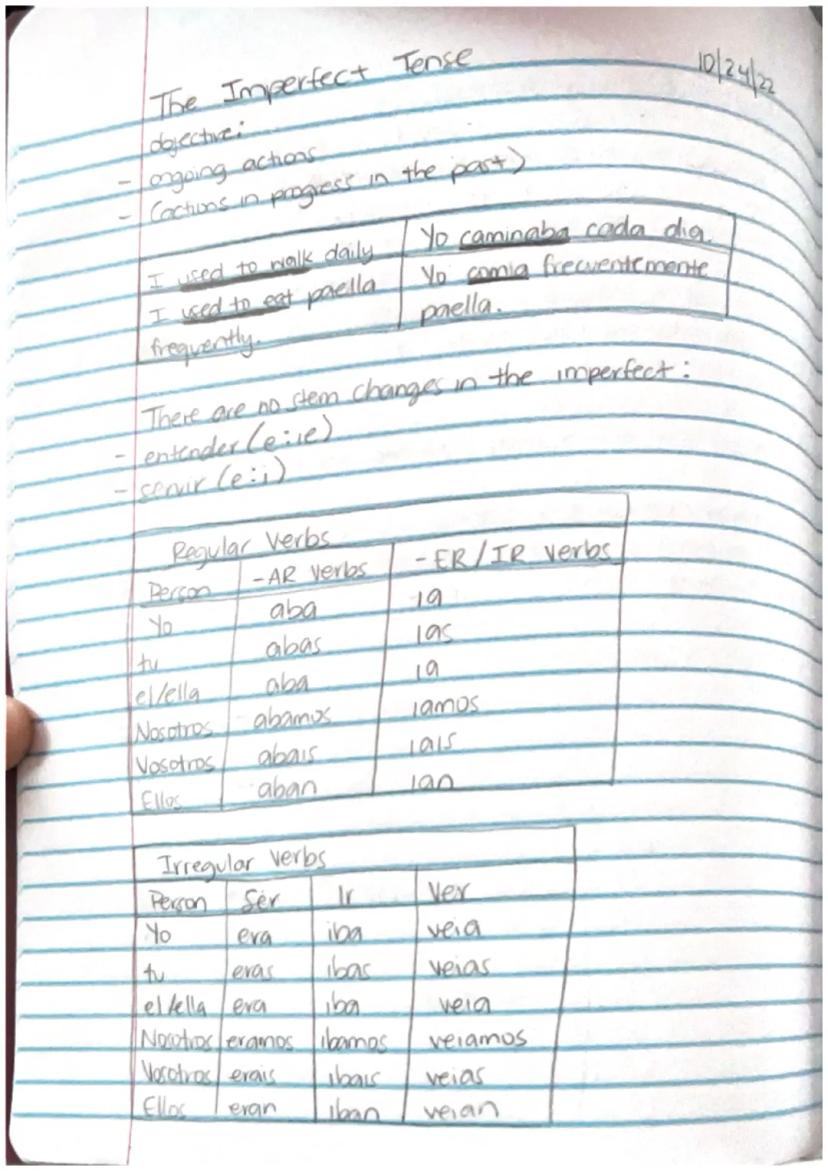 The Imperfect Tense 10/24/22
objective:
- ongoing actions
- (actions in progress in the past)
I used to walk daily Yo caminaba cada dia.
I used to eat paella Yo comia frecuentemente
frequently. paella.
There are no stem changes in the imperfect:
- entender (e:ie)
- servir (e:i)
Regular Verbs
Person -AR verbs -ER/IR verbs
Yo aba ia
tu abas ias
el/ella aba ia
Nosotros abamos iamos
Vosotros abais iais
Ellos aban ian
Irregular verbs
Person Ser Ir Ver
Yo era iba veia
tu eras ibas veias
el/ella era iba veia
Nosotros eramos ibamos veiamos
Vosotros erais ibais veias
Ellos eran iban veian